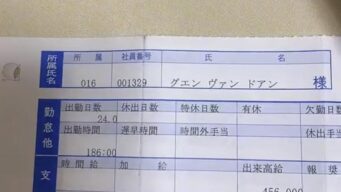 所属 社員番号 氏名
所属氏名 016 001329 グエン ヴァン ドアン 様
勤怠他 出勤日数 休出日数 特休日数 有休 欠勤日数
24.0
出勤時間 遅早時間 時間外手当 休出手
186:00
支 時間給 加給 出来高給 報奨
456,000